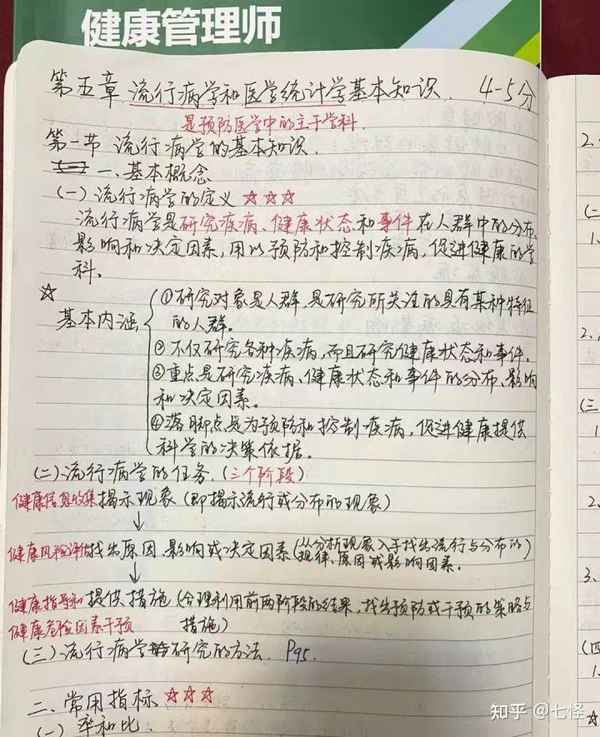 健康管理师
第五章 流行病学和医学统计学基本知识. 4-5分
是预防医学中的主干学科.
第一节 流行病学的基本知识.
一、基本概念
(一)流行病学的定义 ☆☆☆
流行病学是研究疾病、健康状态和事件在人群中的分布、
影响和决定因素,用以预防和控制疾病,促进健康的学
科。
☆
基本内涵
①研究对象是人群,是研究所关注的具有某种特征
的人群。
②不仅研究各种疾病,而且研究健康状态和事件。
③重点是研究疾病、健康状态和事件的分布、影响
和决定因素。
④落脚点是为预防和控制疾病,促进健康提供
科学的决策依据。
(二)流行病学的任务.(三个阶段)
健康信息收集 揭示现象(即揭示流行或分布的现象)
↓
健康风险评估 找出原因、影响或决定因素(从分析现象入手找出流行与分布的
规律、原因或影响因素。)
↓
健康指导和 提供措施(合理利用前两阶段的结果,找出预防或干预的策略与
健康危险因素干预 措施)
(三)流行病学研究的方法. P95.
二、常用指标 ☆☆☆
(一) 率和比.
2.
(二
1.
2.
(三
1.
2.
3.
(四
1.
知乎 @七怪